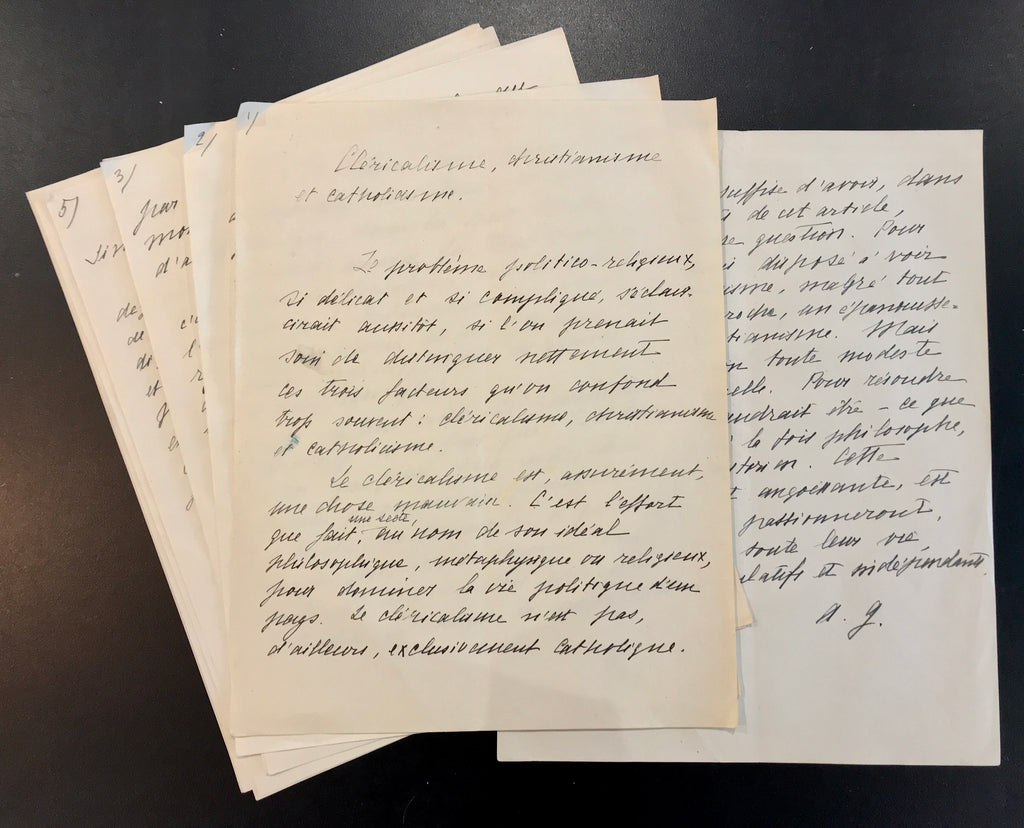 1)
Cléricalisme, christianisme
et catholicisme.
Le problème politico-religieux,
si délicat et si compliqué, s'éclair-
cirait aussitôt, si l'on prenait
soin de distinguer nettement
ces trois facteurs qu'on confond
trop souvent : cléricalisme, christianisme
et catholicisme.
Le cléricalisme est, assurément,
une chose mauvaise. C'est l'effort
que fait, une secte, au nom de son idéal
philosophique, métaphysique ou religieux,
pour dominer la vie politique d'un
pays. Le cléricalisme n'est pas,
d'ailleurs, exclusivement catholique.
2)
3)
par
d'a
5)
de
de
di
et
c'
l'
suffise d'avoir, dans
de cet article,
question. Pour
disposé à voir
isme, malgré tout
roche, un épanouisse-
tianisme. Mais
toute modeste
elle. Pour résoudre
udrait être – ce que
la fois philosophe,
storien. Cette
angoissante, est
passionneront,
toute leur vie
latifs et indépendants.
A. G.